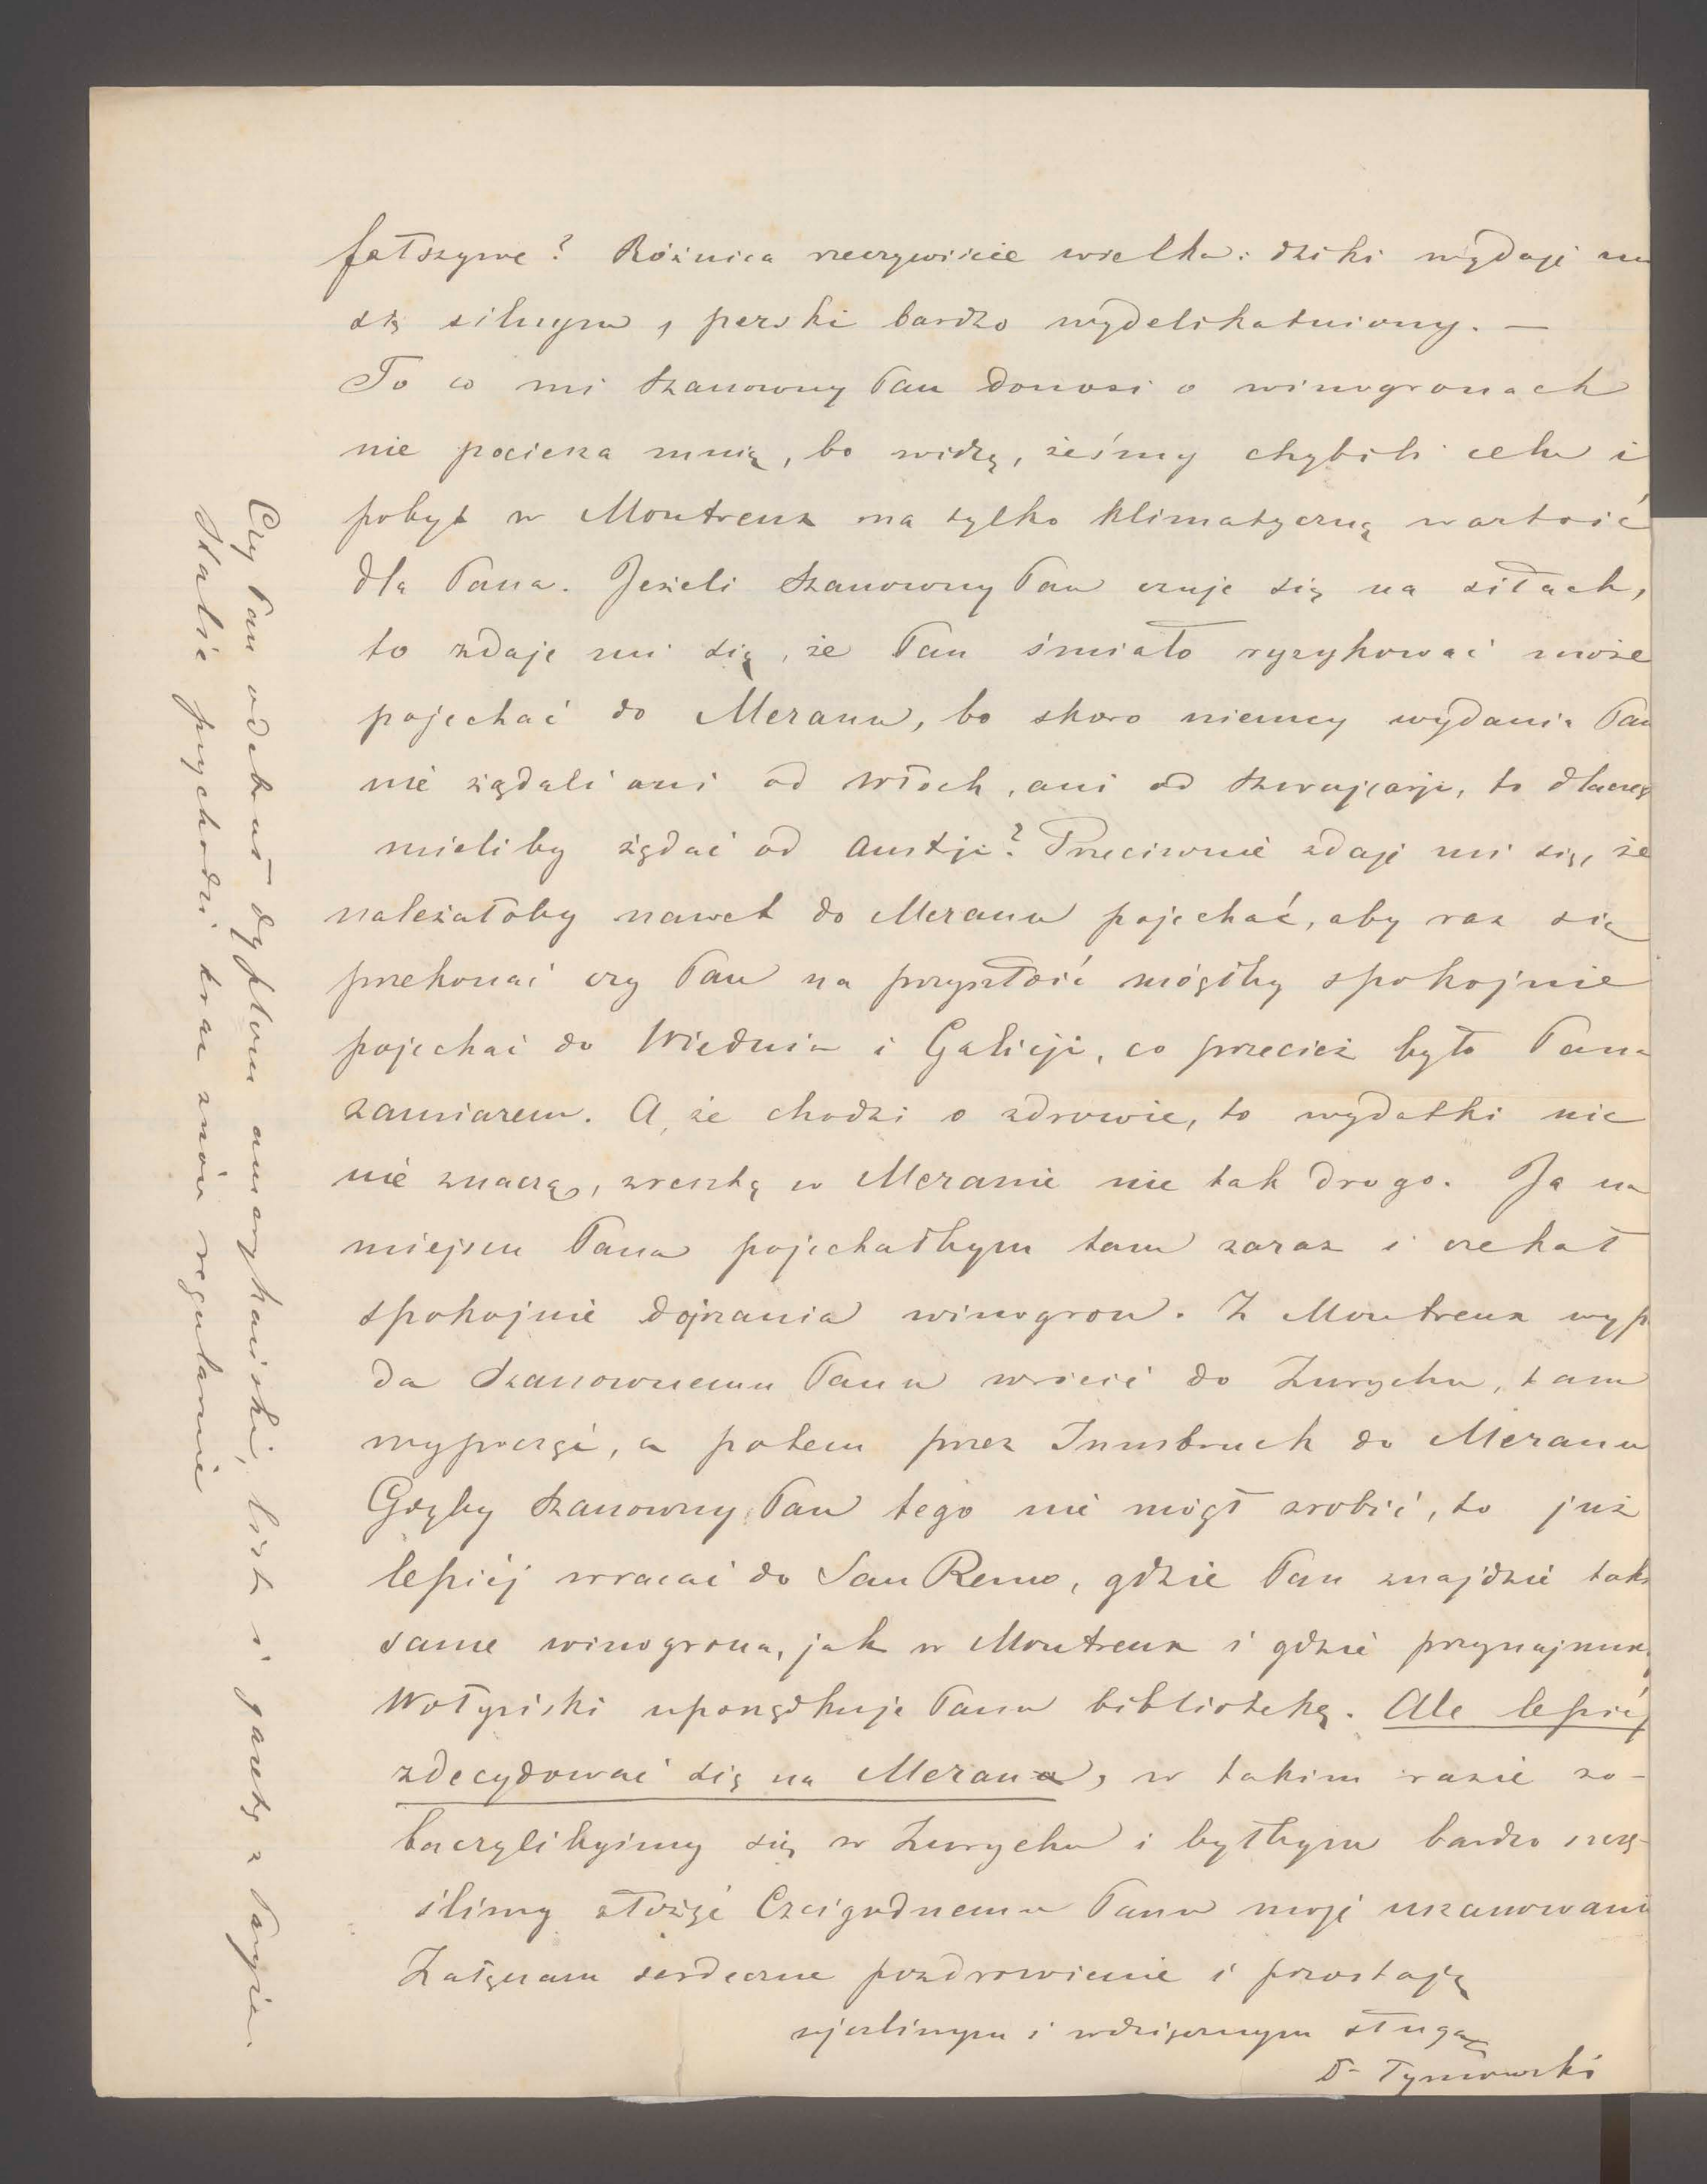 fałszywe? Różnica rzeczywiście wielka: dziki wydaje mi
się silnym, perski bardzo wydelikatniony. —
To co mi Szanowny Pan donosi o winogronach
nie pociesza mnię, bo widzę, żeśmy chybili celu i
pobyt w Montreux ma tylko klimatyczną wartość
dla Pana. Jeżeli Szanowny Pan czuje się na siłach,
to zdaje mi się, że Pan śmiało ryzykować może
pojechać do Meranu, bo skoro niemcy wydania Pan
nie żądali ani od Włoch, ani od Szwajcarji, to dlaczeg
mieliby żądać od Austji? Przeciwnie zdaje mi się, że
należałoby nawet do Meranu pojechać, aby raz się
przekonać czy Pan na przyszłość mógłby spokojnie
pojechać do Wiednia i Galicji, co przecież było Pana
zamiarem. A, że chodzi o zdrowie, to wydatki nic
nie znaczą, zresztą w Meranie nie tak drogo. Ja na
miejscu Pana pojechałbym tam zaraz i czekał
spokojnie dojrzania winogron. Z Montreux wypa
da Szanownemu Panu wrócić do Zurychu, tam
wypocząć, a potem przez Innsbruck do Meranu
Gdyby Szanowny Pan tego nie mógł zrobić, to już
lepiéj wracać do San Remo, gdzie Pan znajdzie taki
same winogrona, jak w Montreux i gdzie przynajmni
Wołyński uporządkuje Panu bibliotekę. Ale lepiéj
zdecydować się na Meran, w takim razie zo-
baczylibyśmy się w Zurychu i byłbym bardzo szczę-
śliwy złożyć Czcigodnemu Panu moje uszanowani
Załączam serdeczne pozdrowienie i pozostaję
życzliwym i wdzięcznym sługą
Dr Tymowski
Czy Pan odebrał dyplom amerykański, list i gazetę z Paryża.
Italie przychodzi teraz znów regularnie